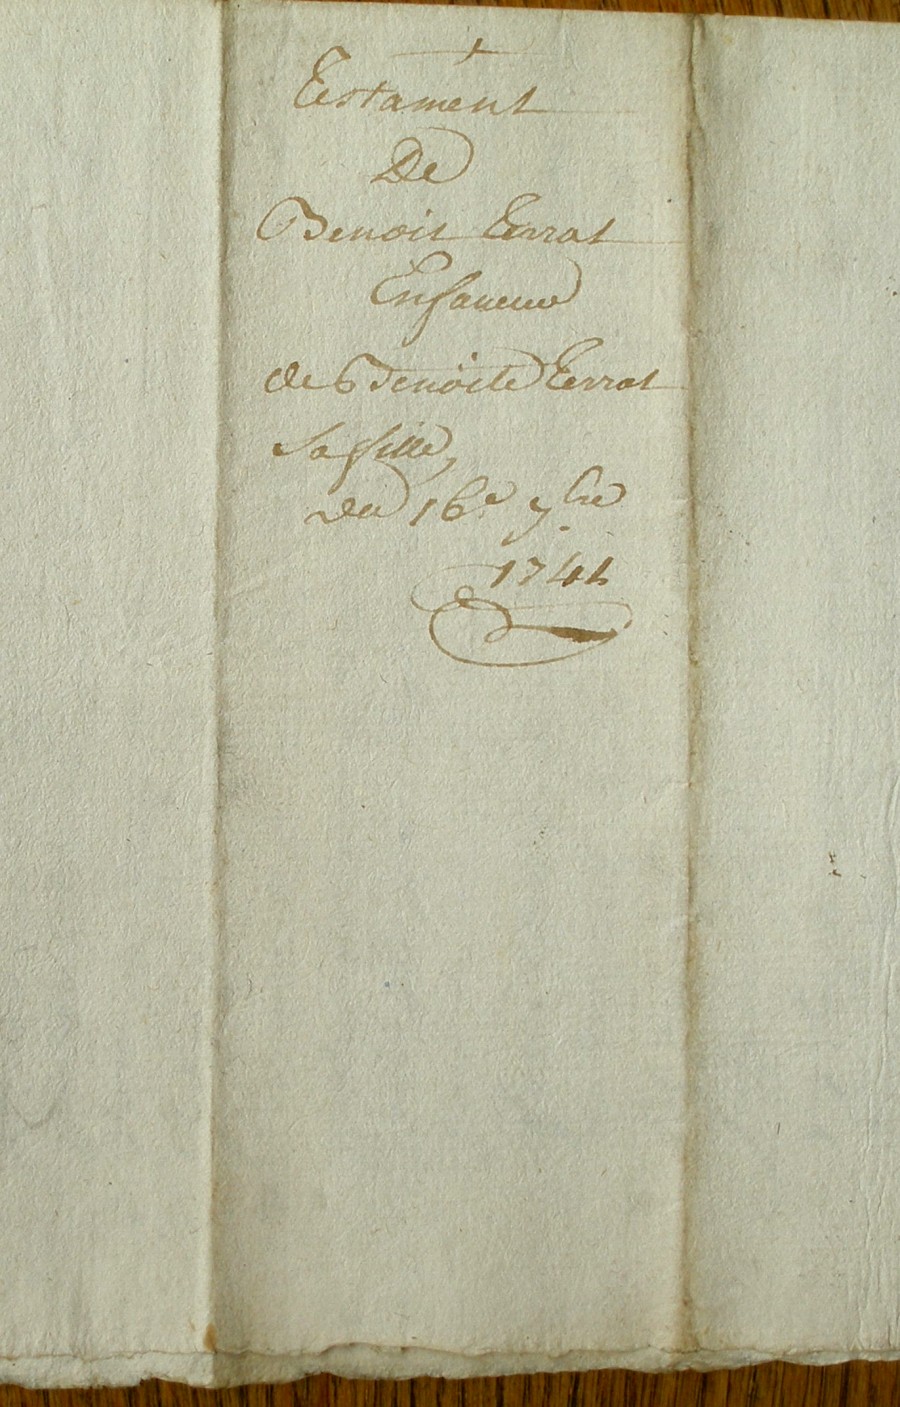 Testament
De
Benoit Terrat
Enfaueur
de Benoite Terrat
Sa fille,
Du 16e 7bre
1741